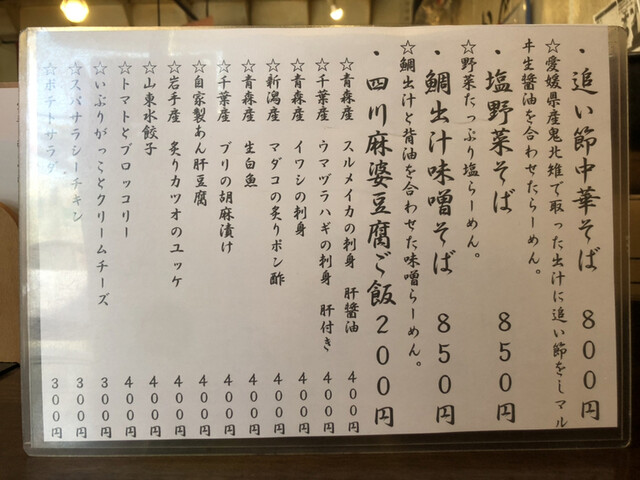 ・追い節中華そば　８００円
☆愛媛県産鬼北雉で取った出汁に追い節をしマル
キ生醤油を合わせたらーめん。
・塩野菜そば　８５０円
☆野菜たっぷり塩らーめん。
・鯛出汁味噌そば　８５０円
☆鯛出汁と背油を合わせた味噌らーめん。
・四川麻婆豆腐ご飯２００円
☆青森産　スルメイカの刺身　肝醤油　４００円
☆千葉産　ウマヅラハギの刺身　肝付き　４００円
☆青森産　イワシの刺身　４００円
☆新潟産　マダコの炙りポン酢　４００円
☆青森産　生白魚　４００円
☆千葉産　ブリの胡麻漬け　４００円
☆自家製あん肝豆腐　４００円
☆岩手産　炙りカツオのユッケ　４００円
☆山東水餃子　４００円
☆トマトとブロッコリー　４００円
☆いぶりがっことクリームチーズ　３００円
☆スパサラシーチキン　３００円
☆ポテトサラダ　３００円